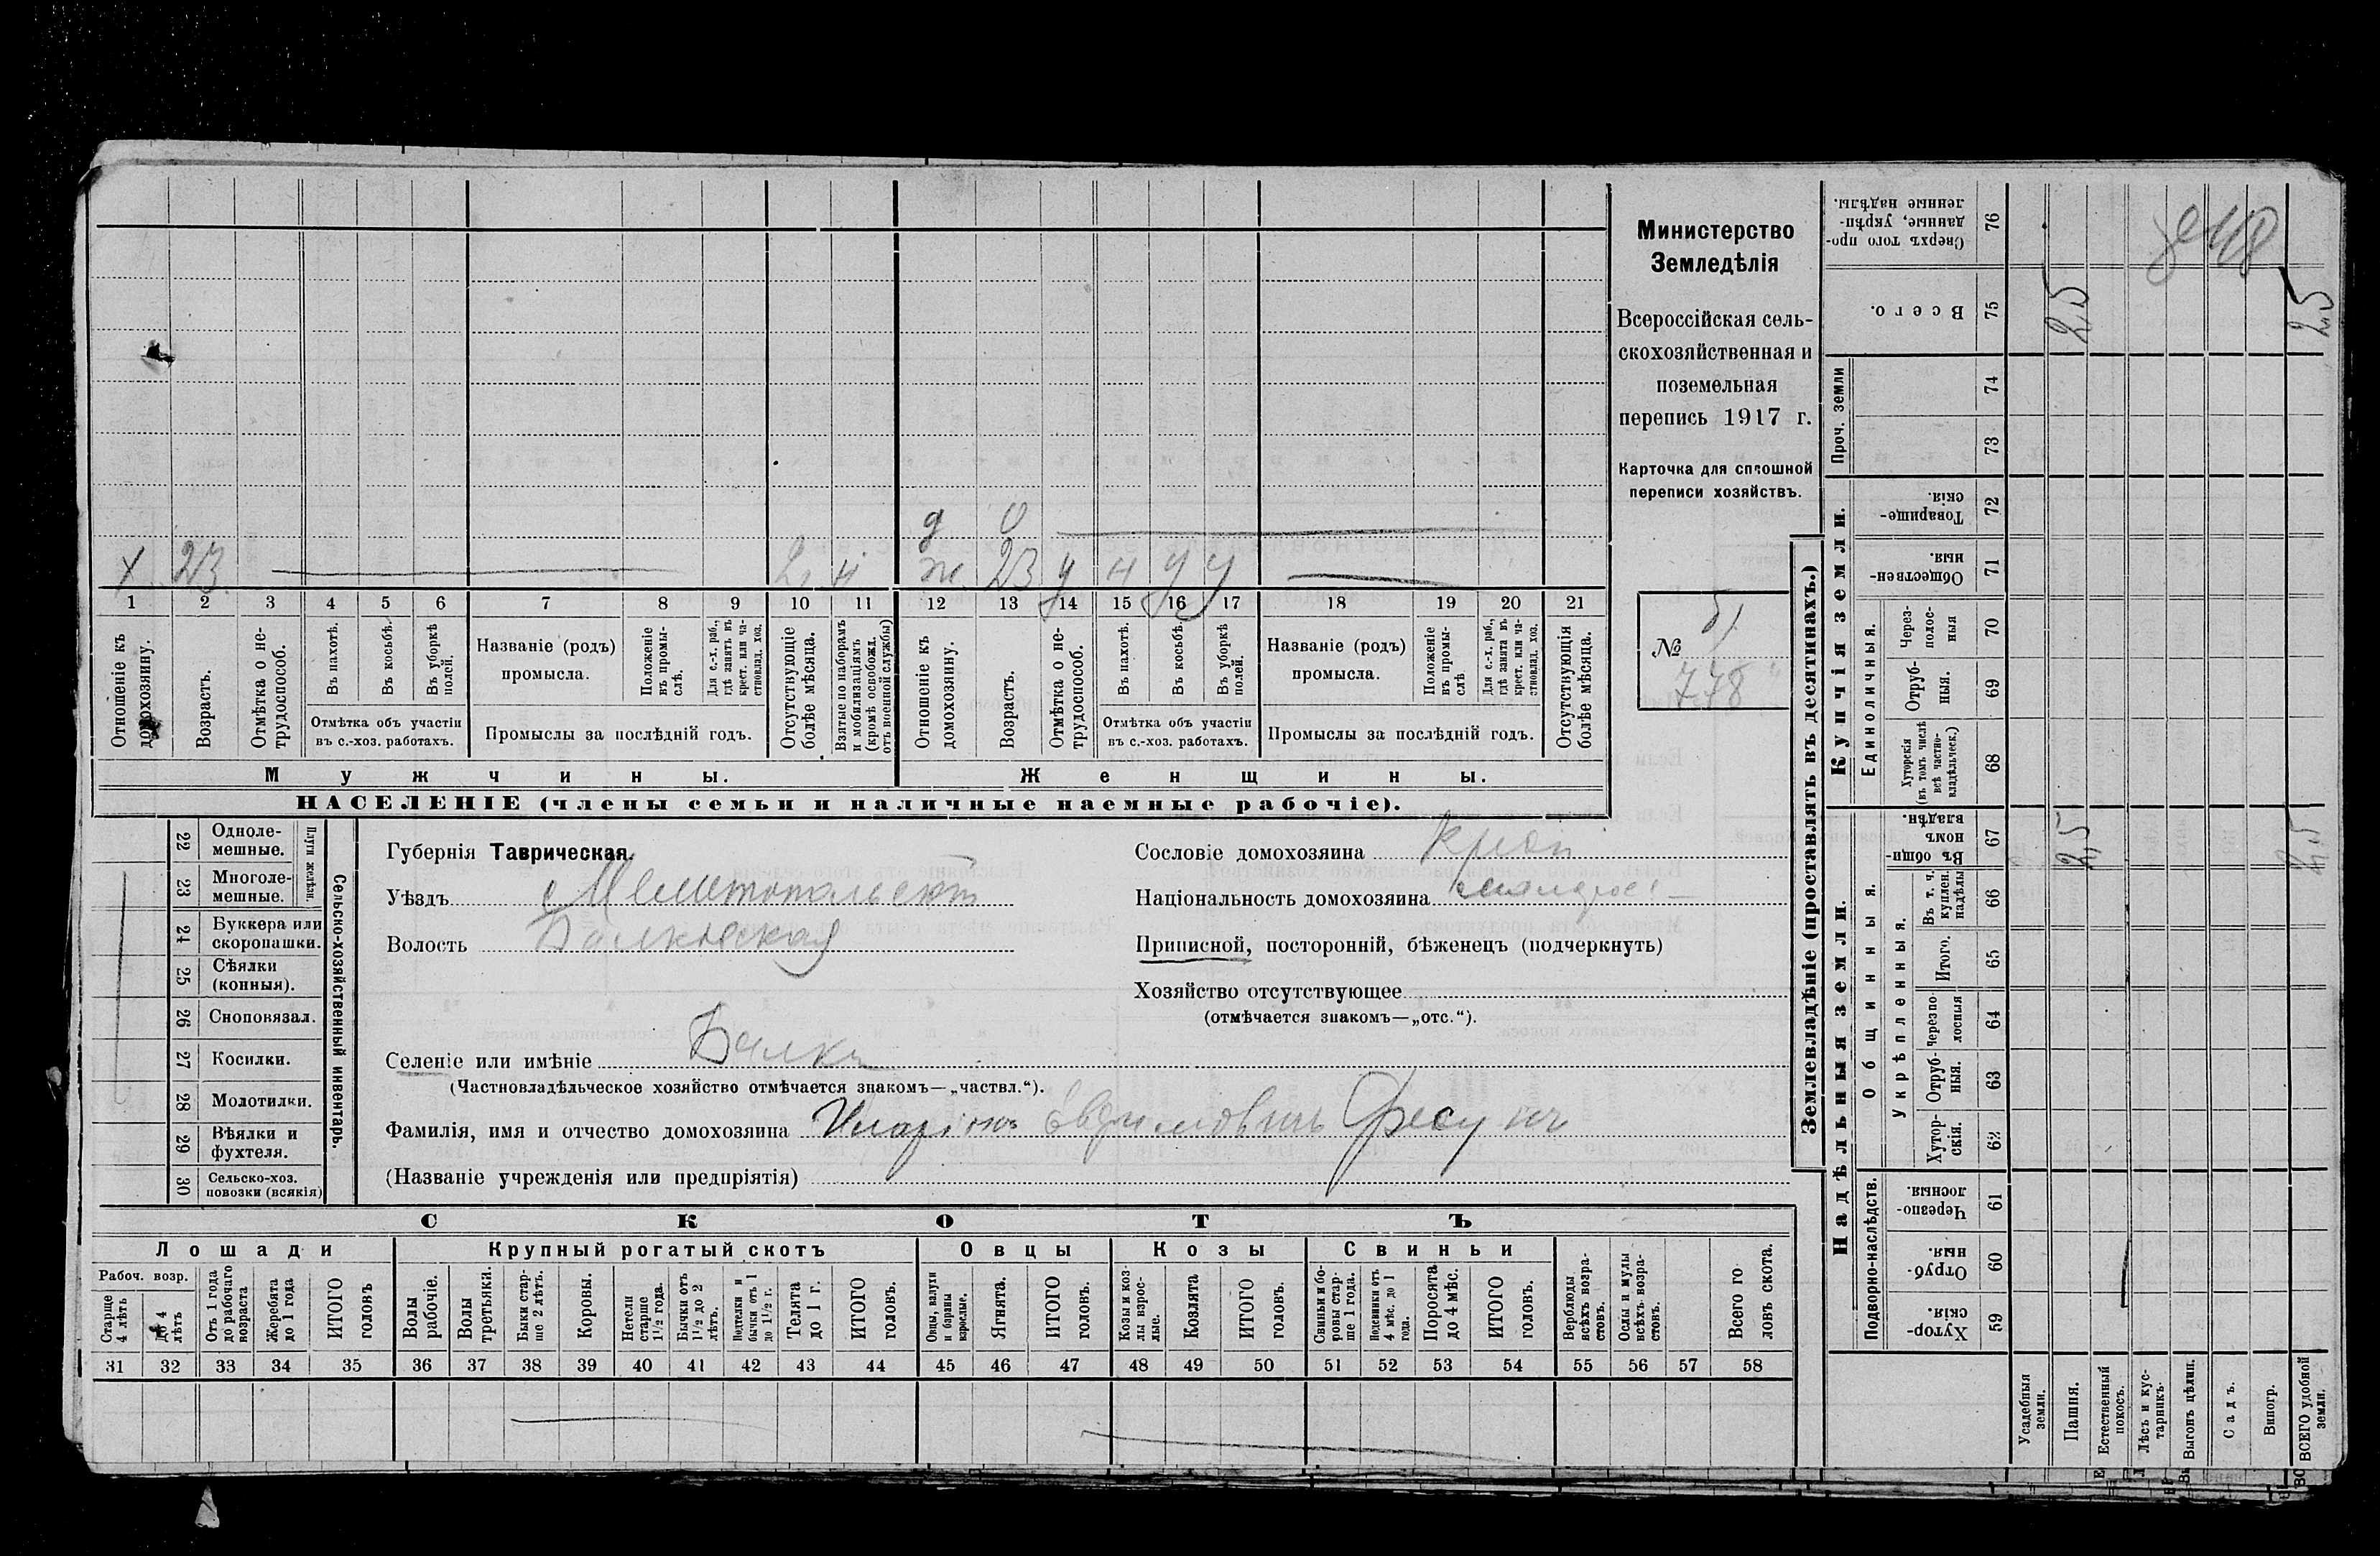 х 23 2 н ж. 23 у н у у
д 0
1 2 3 4 5 6 7 8 9 10 11 12 13 14 15 16 17 18 19 20 21
Отношеніе къ домохозяину.
Возрастъ.
Отмѣтка о не-трудоспособ.
Въ пахотѣ.
Въ косьбѣ.
Въ уборкѣ полей.
Отмѣтка объ участіи
въ с.-хоз. работахъ.
Названіе (родъ)
промысла.
Положеніе въ промы-слѣ.
Для с.-х. раб., гдѣ занятъ въ крест. или ча-стновлад. хоз.
Промыслы за послѣдній годъ.
Отсутствующіе болѣе мѣсяца.
Взятые по наборамъ и мобилизаціямъ (кромѣ освобожд. отъ военной службы)
Отношеніе къ домохозяину.
Возрастъ.
Отмѣтка о не-трудоспособ.
Въ пахотѣ.
Въ косьбѣ.
Въ уборкѣ полей.
Отмѣтка объ участіи
въ с.-хоз. работахъ.
Названіе (родъ)
промысла.
Положеніе въ промы-слѣ
Для с.-х. раб., гдѣ занята въ крест. или ча-стновлад. хоз.
Промыслы за послѣдній годъ.
Отсутствующія болѣе мѣсяца.
Мужчины.
Женщины.
НАСЕЛЕНІЕ (члены семьи и наличные наемные рабочіе).
Министерство
Земледѣлія
Всероссійская сель-
скохозяйственная и
поземельная
перепись 1917 г.
Карточка для сплошной
переписи хозяйствъ.
№
778
22 Одноле-мешные.
23 Многоле-мешные.
Плуги желѣзн.
24 Буккера или скоропашки.
25 Сѣялки (конныя).
26 Сноповязал.
27 Косилки.
28 Молотилки.
29 Вѣялки и фухтеля.
30 Сельско-хоз. повозки (всякія)
Сельско-хозяйственный инвентарь.
Губернія Таврическая.
Уѣздъ Мелитопольскій
Волость Балковская
Селеніе или имѣніе Балки
(Частновладѣльческое хозяйство отмѣчается знакомъ—„частвл.“).
Фамилія, имя и отчество домохозяина Иларіонъ Евдимовичъ
(Названіе учрежденія или предпріятія)
Сословіе домохозяина
Національность домохозяина малорос
Приписной, посторонній, бѣженецъ (подчеркнуть)
Хозяйство отсутствующее
(отмѣчается знакомъ—„отс.“).
СКОТЪ
Лошади
Рабоч. возр.
Старше 4 лѣтъ
до 4 лѣтъ
Отъ 1 года до рабочаго возраста
Жеребята до 1 года
ИТОГО головъ
Крупный рогатый скотъ
Волы рабочіе.
Волы третьяки.
Быки стар-ше 2 лѣтъ.
Коровы.
Нетели старше 1½ года.
Бычки отъ 1½ до 2 лѣтъ.
Подтелки и бычки отъ 1 до 1½ г.
Телята до 1 г.
ИТОГО головъ.
Овцы
Овцы, валухи и бараны взрослые.
Ягнята.
ИТОГО головъ.
Козы
Козы и коз-лы взрос-лые.
Козлята
ИТОГО головъ.
Свиньи
Свиньи и бо-ровы стар-ше 1 года.
Подсвинки отъ 4 мѣс. до 1 года.
Поросята до 4 мѣс.
ИТОГО головъ.
Верблюды всѣхъ возра-стовъ.
Ослы и мулы всѣхъ возра-стовъ.
Всего го-ловъ скота.
31 32 33 34 35 36 37 38 39 40 41 42 43 44 45 46 47 48 49 50 51 52 53 54 55 56 57 58
Землевладѣніе (проставлять въ десятинахъ.)
Надѣльныя земли.
Подворно-наслѣдств.
Хутор-скія. 59
Отруб-ныя. 60
Черезпо-лосныя. 61
Общинныя.
Укрѣпленныя.
Хутор-скія. 62
Отруб-ныя. 63
Черезпо-лосныя 64
Итого. 65
Въ т. ч. куплен. надѣлы 66
Въ общи-номъ владѣн. 67
2,5 2,5
Купчія земли.
Единоличныя.
Хуторскія (въ томъ числѣ всѣ частно-владѣльческ.) 68
Отруб-ныя. 69
Через-полос-ныя 70
Обществен-ныя. 71
Товарище-скія. 72
Проч. земли
73
74
Всего. 75
2,5 2,5
Сверхъ того про-данные, укрѣп-ленные надѣлы. 76
Усадебныя земли.
Пашня.
Естественный покосъ.
Лѣсъ и кус-тарникъ.
Выгонъ цѣлин.
Садъ.
Виногр.
ВСЕГО удобной земли.